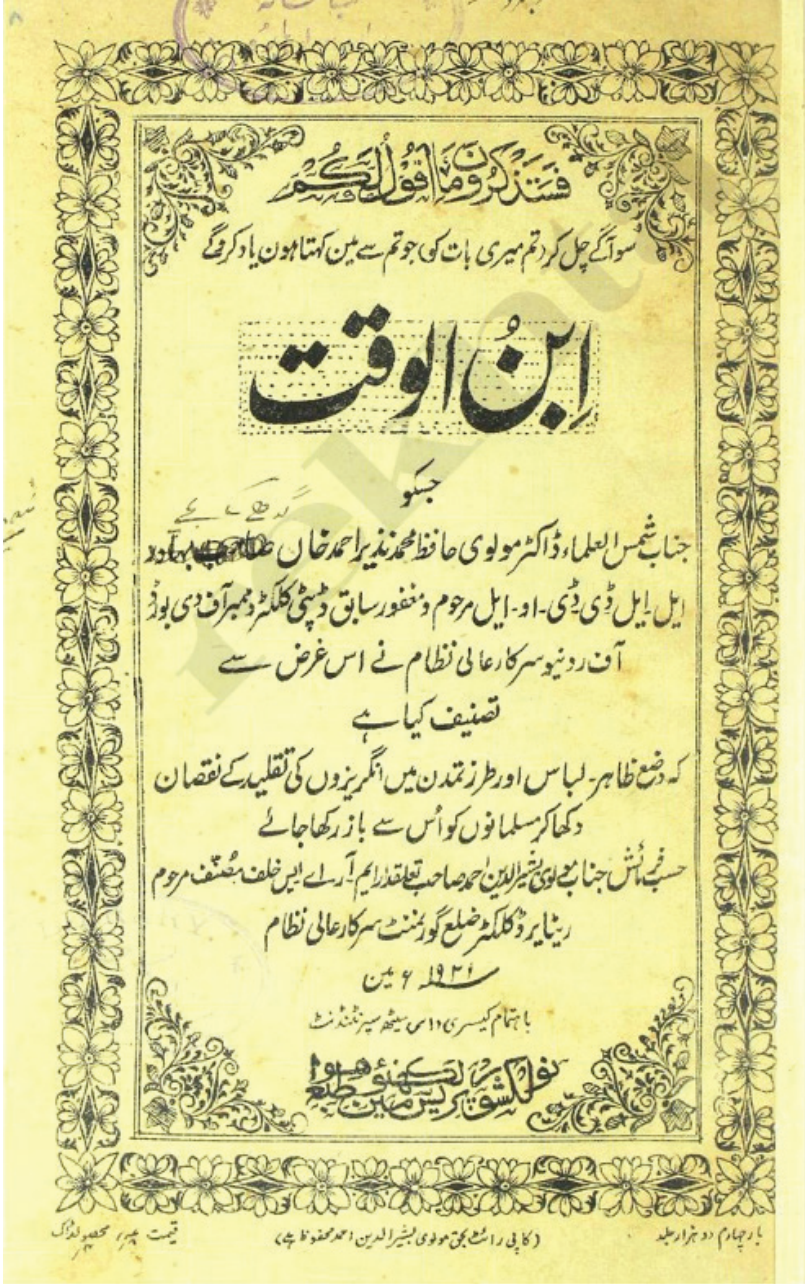 فستذکرون ما اقول لکم
سو آگے چل کر تم میری بات کو جو تم سے مین کہتا ہون یاد کروگے
اِبنُ الوقت
جسکو
جناب شمس العلماء ڈاکٹر مولوی حافظ محمد نذیر احمد خان صاحب بہادر
ایل۔ایل ڈی۔ڈی۔او۔ایل مرحوم و مغفور سابق ڈپٹی کلکٹر و ممبر آف دی بورڈ
آف رونیو سرکار عالی نظام نے اس غرض سے
تصنیف کیا ہے
کہ وضع ظاہر۔لباس اور طرز تمدن میں انگریزوں کی تقلید کے نقصان
دکھا کر مسلمانوں کو اُس سے باز رکھا جائے
حسب فرمائش جناب مولوی بشیر الدین احمد صاحب تعلقدار ایم۔آر۔اے ایس خلف مصنف مرحوم
ریٹایرڈ کلکٹر ضلع گورنمنٹ سرکار عالی نظام
۱۹۲۱ء مین
باہتمام کیسری داس سیٹھ سپرنٹنڈنٹ
نولکشور پریس لکھنؤ مین طبع ہوا
بار چہارم دو ہزار جلد
(کاپی رائٹ بحق مولوی بشیر الدین احمد محفوظ ہے)
قیمت محصولڈاک
rekhta